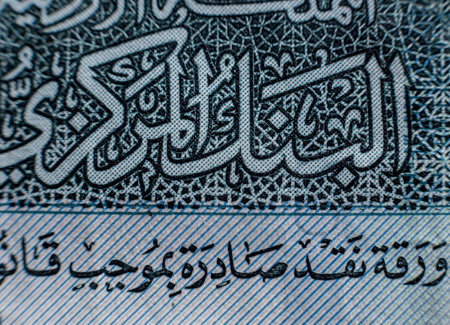 البنك المركزي
وَرَقة نَقْد صَادِرَة بِمُوجِب